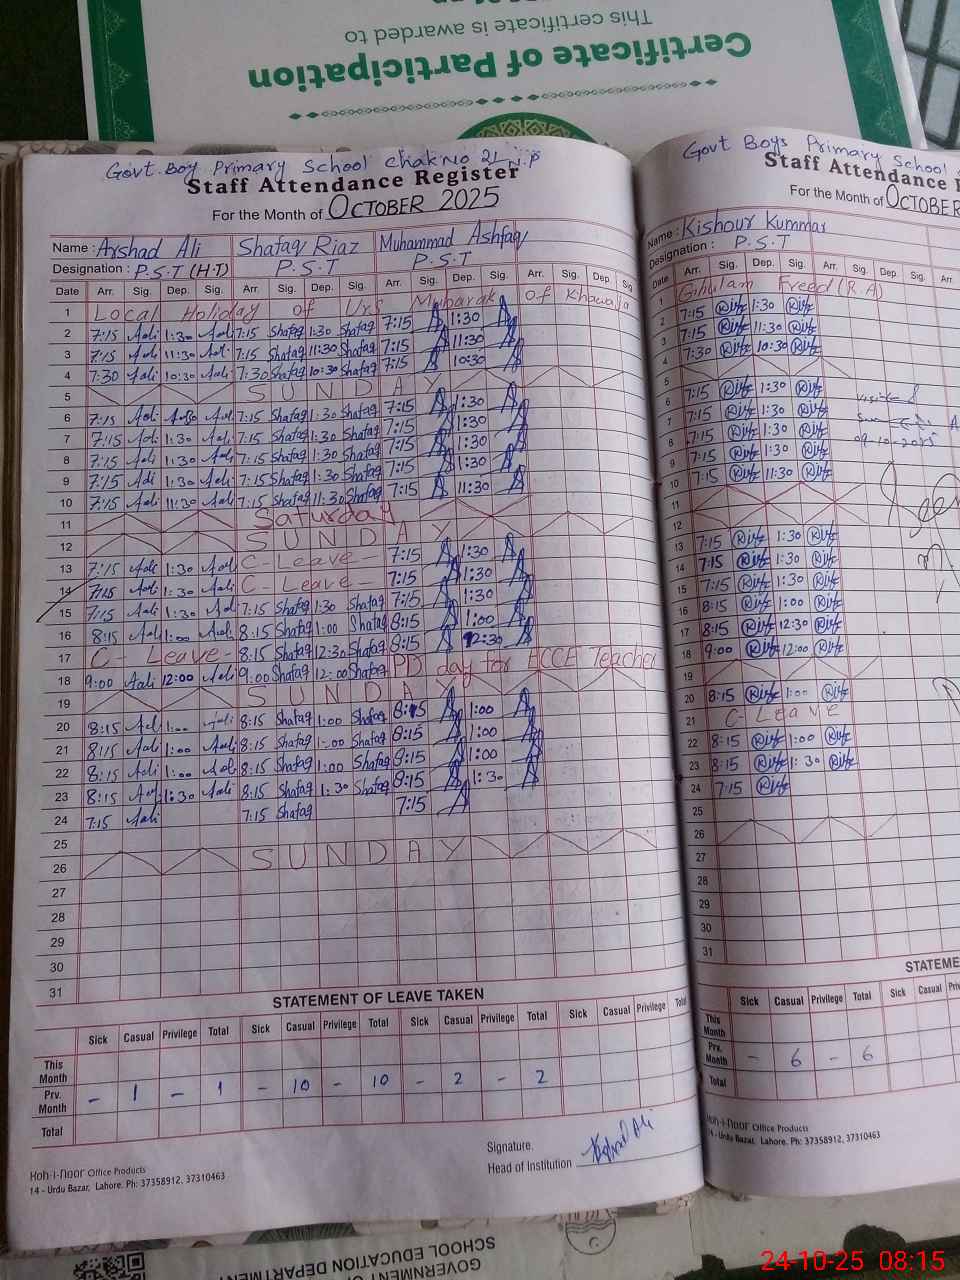 This certificate is awarded to
Certificate of Participation
Govt. Boy Primary School Chak No 21 N.P
Staff Attendance Register
For the Month of OCTOBER 2025
Name : Arshad Ali Shafaq Riaz Muhammad Ashfaq
Designation : P.S.T (H.T) P.S.T P.S.T
Date Arr. Sig. Dep. Sig. Arr. Sig. Dep. Sig. Arr. Sig. Dep. Sig. Arr. Sig. Dep. Sig
1 Local Holiday of Urs Mubarak of Khawaja
2 7:15 Aali 1:30 Aali 7:15 Shafaq 1:30 Shafaq 7:15 1:30
3 7:15 Aali 11:30 Aali 7:15 Shafaq 11:30 Shafaq 7:15 11:30
4 7:30 Aali 10:30 Aali 7:30 Shafaq 10:30 Shafaq 7:15 10:30
5 SUNDAY
6 7:15 Aali 1:30 Aali 7:15 Shafaq 1:30 Shafaq 7:15 1:30
7 7:15 Aali 1:30 Aali 7:15 Shafaq 1:30 Shafaq 7:15 1:30
8 7:15 Aali 1:30 Aali 7:15 Shafaq 1:30 Shafaq 7:15 1:30
9 7:15 Aali 1:30 Aali 7:15 Shafaq 1:30 Shafaq 7:15 1:30
10 7:15 Aali 11:30 Aali 7:15 Shafaq 11:30 Shafaq 7:15 11:30
11 Saturday
12 SUNDAY
13 7:15 Aali 1:30 Aali C-Leave- 7:15 1:30
14 7:15 Aali 1:30 Aali C-Leave- 7:15 1:30
15 7:15 Aali 1:30 Aali 7:15 Shafaq 1:30 Shafaq 7:15 1:30
16 8:15 Aali 1:00 Aali 8:15 Shafaq 1:00 Shafaq 8:15 1:00
17 C-Leave- 8:15 Shafaq 12:30 Shafaq 8:15 12:30
18 9:00 Aali 12:00 Aali 9:00 Shafaq 12:00 Shafaq PD day for ECCE Teacher
19 SUNDAY
20 8:15 Aali 1:00 Aali 8:15 Shafaq 1:00 Shafaq 8:15 1:00
21 8:15 Aali 1:00 Aali 8:15 Shafaq 1:00 Shafaq 8:15 1:00
22 8:15 Aali 1:00 Aali 8:15 Shafaq 1:00 Shafaq 8:15 1:00
23 8:15 Aali 1:30 Aali 8:15 Shafaq 1:30 Shafaq 8:15 1:30
24 7:15 Aali 7:15 Shafaq 7:15
25
26 SUNDAY
27
28
29
30
31
STATEMENT OF LEAVE TAKEN
Sick Casual Privilege Total Sick Casual Privilege Total Sick Casual Privilege Total Sick Casual Privilege Total
This Month
Prv. Month - 1 - 1 - 10 - 10 - 2 - 2
Total
Signature.
Head of Institution Arshad Ali
Koh-i-Noor Office Products
14 - Urdu Bazar, Lahore. Ph: 37358912, 37310463
Govt Boys Primary School
Staff Attendance
For the Month of OCTOBER
Name : Kishour Kummar
Designation : P.S.T
Date Arr. Sig. Dep. Sig. Arr. Sig. Dep. Sig. Arr.
1 Ghulam Freed (R.A)
2 7:15 1:30
3 7:15 11:30
4 7:30 10:30
5
6 7:15 1:30
7 7:15 1:30
8 7:15 1:30
9 7:15 1:30
10 7:15 11:30
11
12
13 7:15 1:30
14 7:15 1:30
15 7:15 1:30
16 8:15 1:00
17 8:15 12:30
18 9:00 12:00
19
20 8:15 1:00
21 C-Leave
22 8:15 1:00
23 8:15 1:30
24 7:15
25
26
27
28
29
30
31
Visited
09-10-2025
STATEME
Sick Casual Privilege Total Sick Casual
This Month
Prv. Month - 6 - 6
Total
Koh-i-Noor Office Products
14 - Urdu Bazar, Lahore. Ph: 37358912, 37310463
SCHOOL EDUCATION DEPARTMENT
24-10-25 08:15